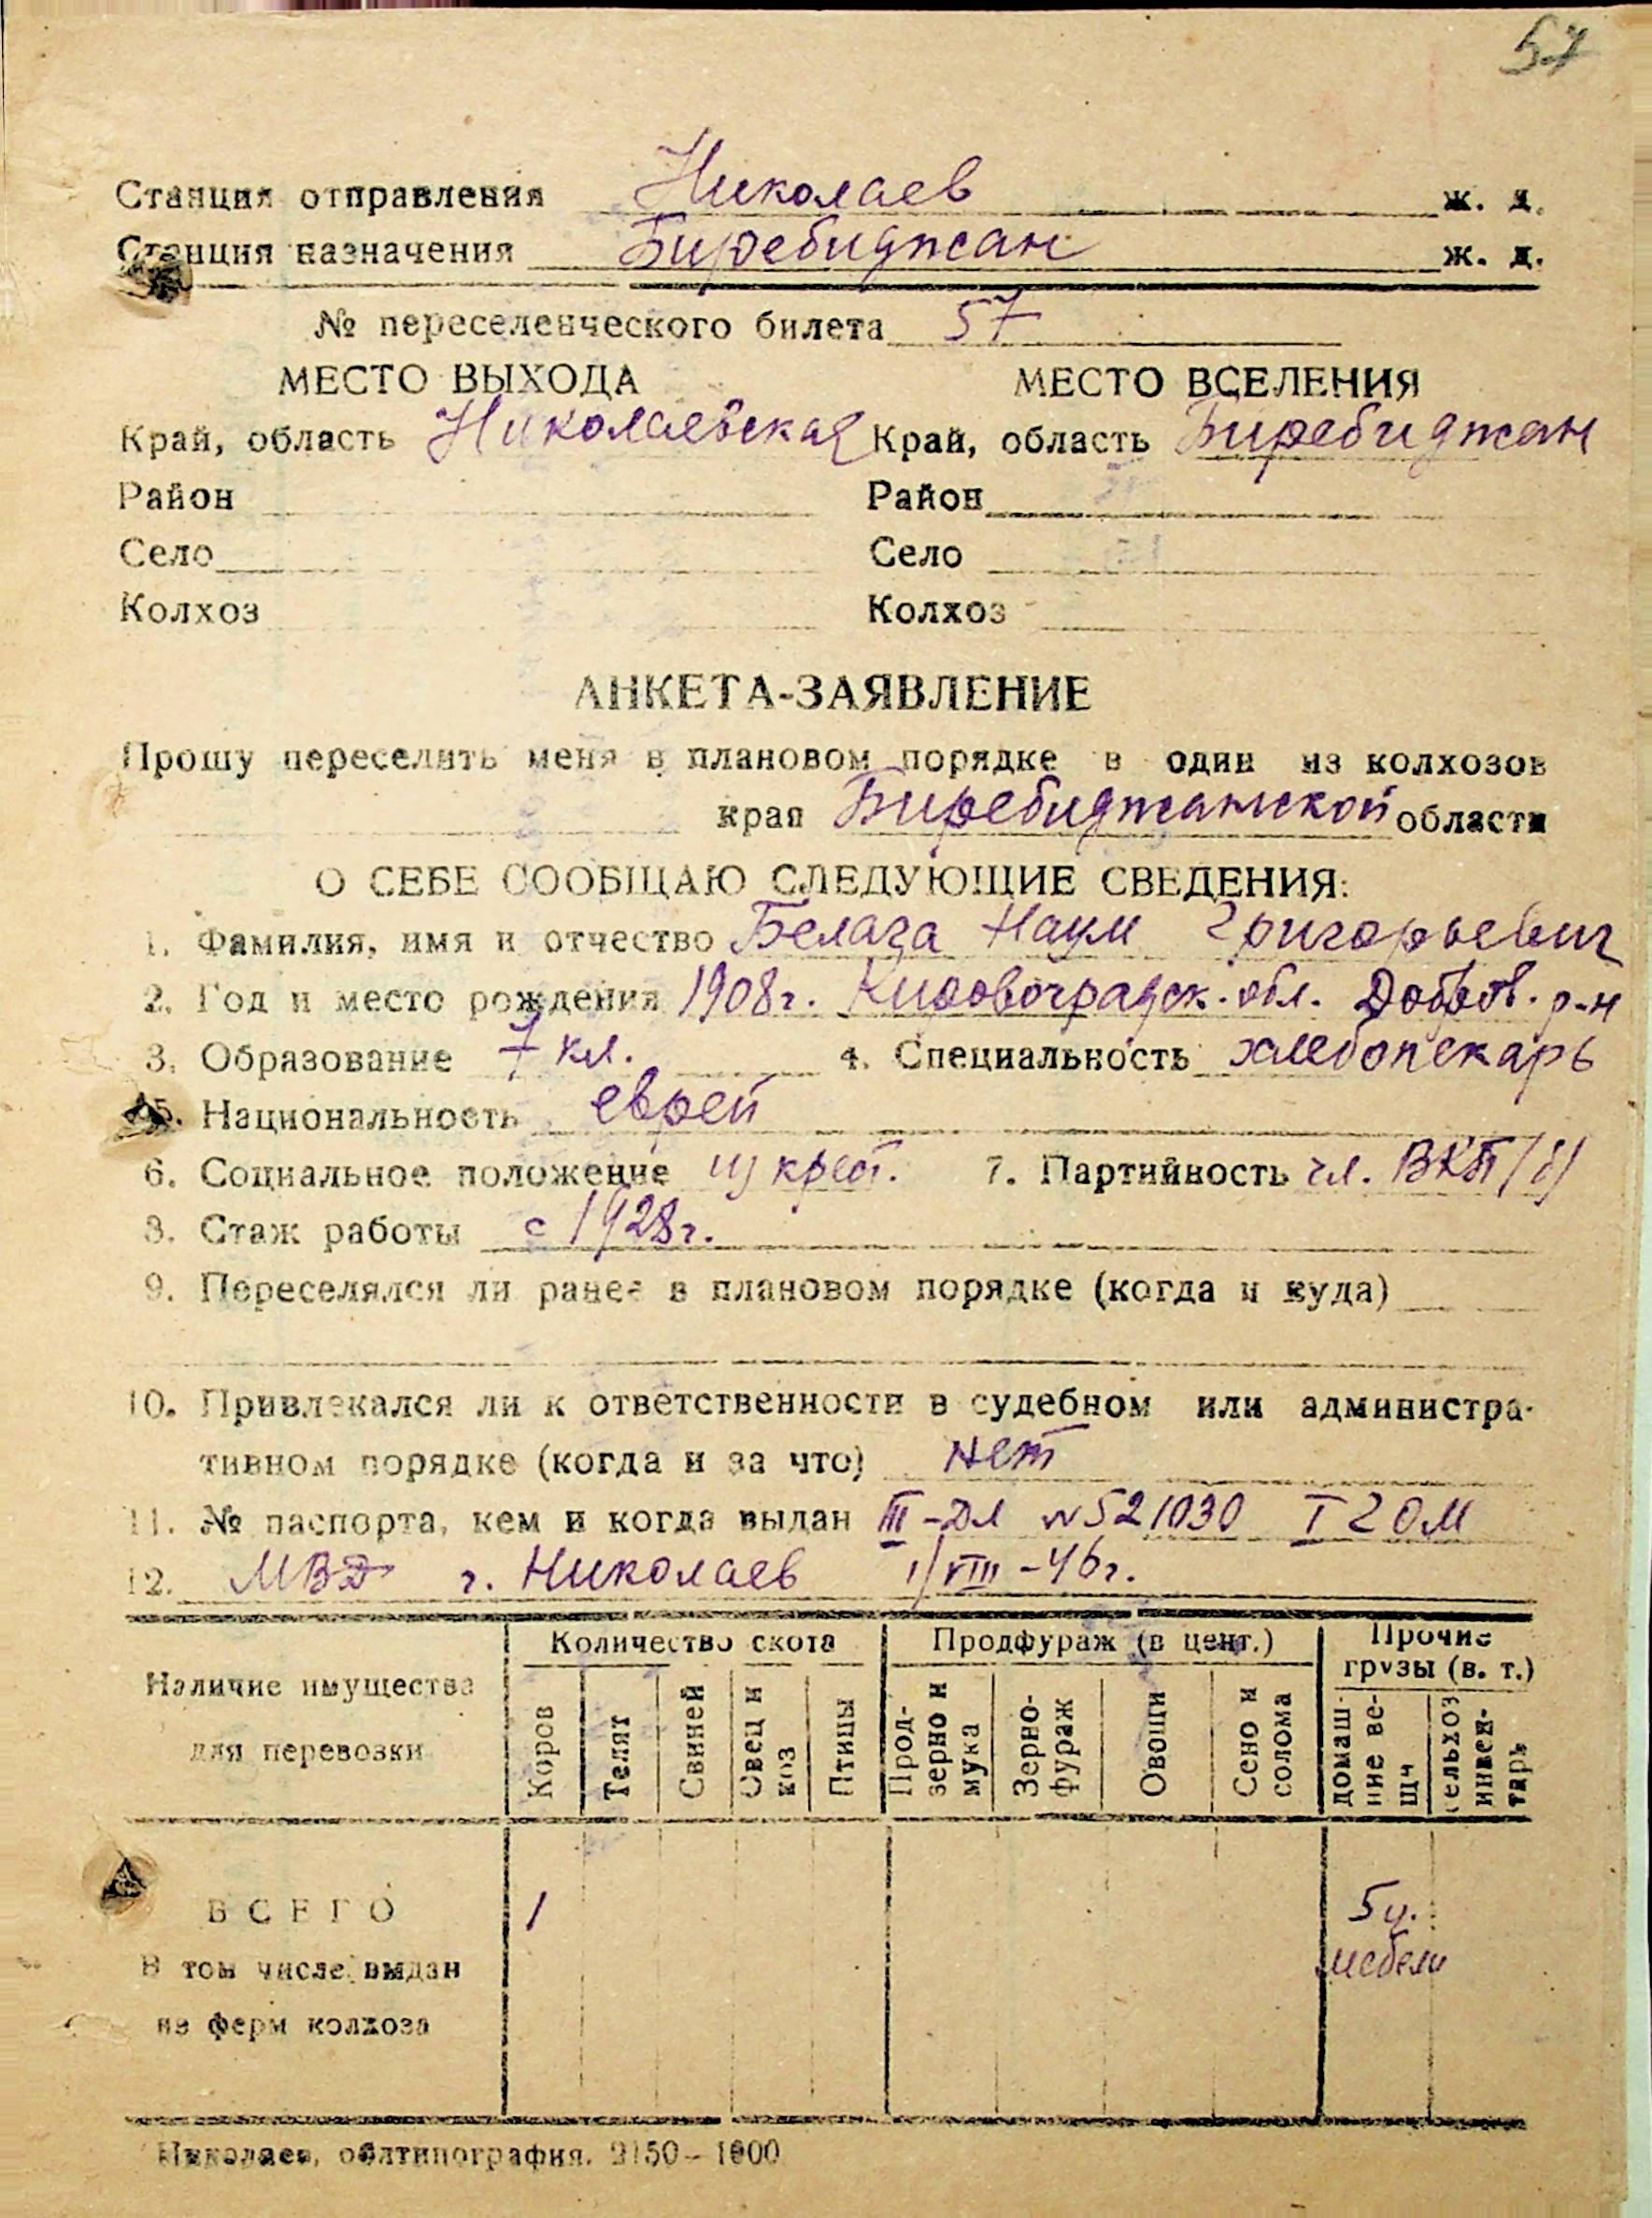 57
Станция отправления Николаев ж. д.
Станция назначения Биребиджан ж. д.
№ переселенческого билета 57
МЕСТО ВЫХОДА МЕСТО ВСЕЛЕНИЯ
Край, область Николаевская Край, область Биребиджан
Район Район
Село Село
Колхоз Колхоз
АНКЕТА-ЗАЯВЛЕНИЕ
Прошу переселить меня в плановом порядке в один из колхозов
края Биребиджанской области
О СЕБЕ СООБЩАЮ СЛЕДУЮЩИЕ СВЕДЕНИЯ:
1. Фамилия, имя и отчество Белага Наум Григорьевич
2. Год и место рождения 1908г. Кировоградск. обл. Добров. р-н
3. Образование 7 кл. 4. Специальность хлебопекарь
5. Национальность еврей
6. Социальное положение из крест. 7. Партийность чл. ВКП/б/
8. Стаж работы с 1928г.
9. Переселялся ли ранее в плановом порядке (когда и куда)
10. Привлекался ли к ответственности в судебном или администра-
тивном порядке (когда и за что) нет
11. № паспорта, кем и когда выдан III-ДЛ №521030 I ГОМ
12. МВД г. Николаев 1/VIII-46г.
Наличие имущества для перевозки
Количество скота Продфураж (в цент.) Прочие грузы (в. т.)
Коров Телят Свиней Овец и коз Птицы Прод-зерно и мука Зерно-фураж Овощи Сено и солома домаш-ние ве-щи сельхоз инвен-тарь
ВСЕГО 1 5ц.
мебели
В том числе выдан
из ферм колхоза
Николаев, облтипография. 2150—1000